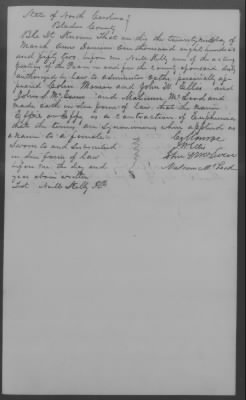 State of North Carolina }
Bladen County }
Be It Known That on this the twenty
March Anno Domini one thousand eight hundred
and fifty two before me Neill Kelly one of the acting
Justices of the Peace in and for the County aforesaid duly
authorised by law to administer oaths personally ap
peared Colin Monroe and John W Ellis and
John A McEwen and Malcom McLeod and
made oath in due form of law that the name
Effie or Effy is a contraction of Euphemia
that the terms are synonymous when applied as
a name to a female
Sworn to and subscribed C Monroe
in due form of law JW Ellis
before me the day and John A McEwen
year above written Malcom McLeod
Test Neill Kelly JP